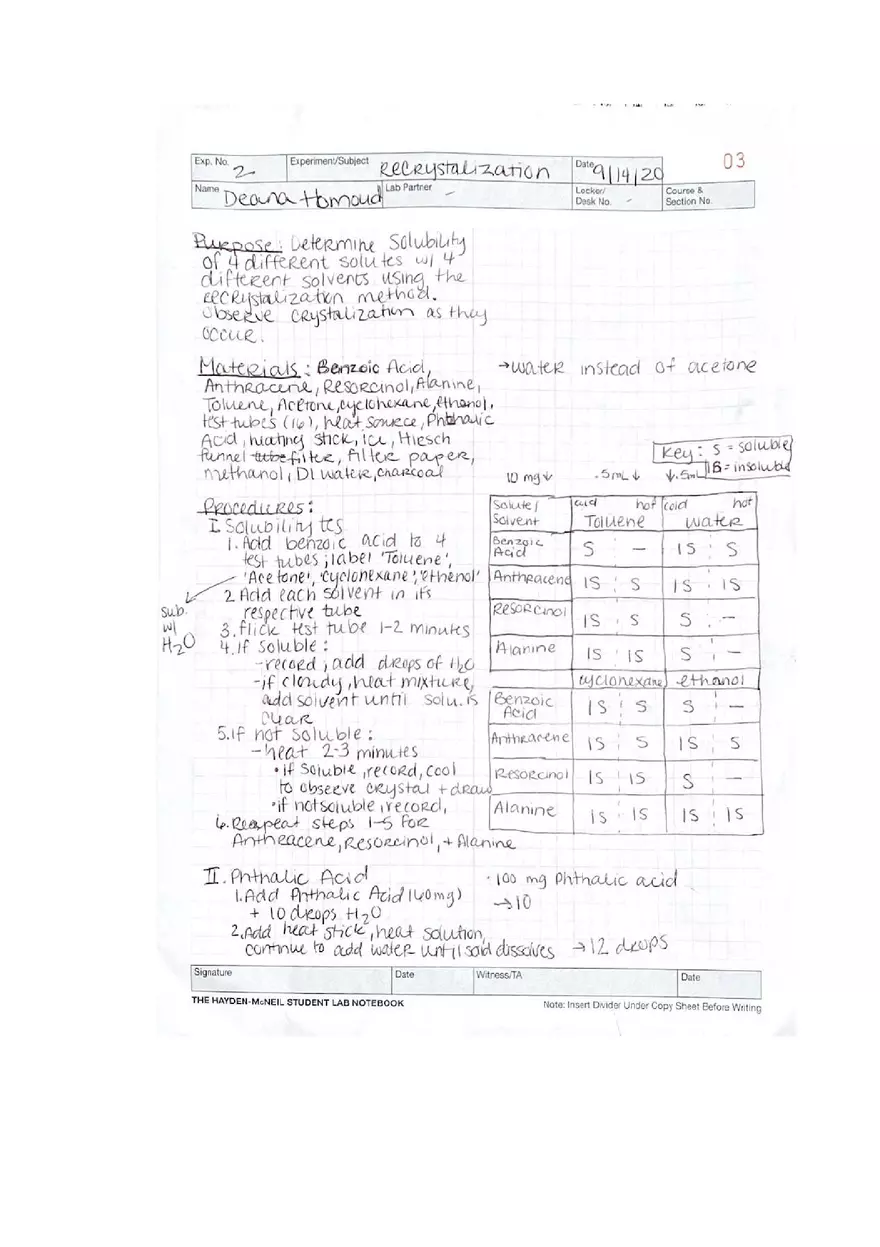 Exp. No. 2 Experiment/Subject Recrystalization Date 9/14/20 03
Name Deana Lab Partner - Locker/ Desk No. - Course & Section No.
Purpose: Determine Solubility
of 4 different solutes w/ 4
different solvents using the
recrystalization method.
Observe crystalization as they
occur.
Materials: Benzoic Acid, → water instead of acetone
Anthracene, Resorcinol, Alanine,
Toluene, Acetone, cyclohexane, ethanol,
test tubes (16), heat source, Phthalic
Acid, heating stick, Ice, Hirsch
funnel tube filter, filter paper,
methanol, DI water, charcoal
Key: S = soluble
IS = insoluble
10 mg ↓ .5mL ↓ ↓ .5mL
Procedures:
I. Solubility tes
1. Add benzoic acid to 4
test tubes; label 'Toluene',
'Acetone', 'cyclohexane', 'ethanol'
2. Add each solvent in its
respective tube
sub.
w/
H2O
3. flick test tube 1-2 minutes
4. If soluble:
- record, add drops of H2O
- if cloudy, heat mixture,
add solvent until solu. is
clear
5. if not soluble:
- heat 2-3 minutes
• if soluble, record, cool
to observe crystal + draw
• if not soluble, record,
6. Repeat steps 1-5 for
Anthracene, Resorcinol, + Alanine
Solute/ Solvent cold hot cold hot
Toluene water
Benzoic Acid S - IS S
Anthracene IS S IS IS
Resorcinol IS S S -
Alanine IS IS S -
cyclohexane ethanol
Benzoic Acid IS S S -
Anthracene IS S IS S
Resorcinol IS IS S -
Alanine IS IS IS IS
II. Phthalic Acid • 100 mg Phthalic acid
1. Add Phthalic Acid (60mg) → 10
+ 10 drops H2O
2. Add heat stick, heat solution,
continue to add water until solid dissolves → 12 drops
Signature Date Witness/TA Date
THE HAYDEN-McNEIL STUDENT LAB NOTEBOOK Note: Insert Divider Under Copy Sheet Before Writing